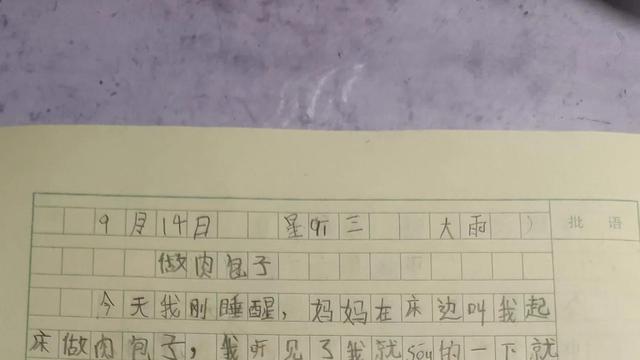 9月14日 星听三 大雨
批语
做肉包子
今天我刚睡醒，妈妈在床边叫我起
床做肉包子，我听见了我就sōu的一下就